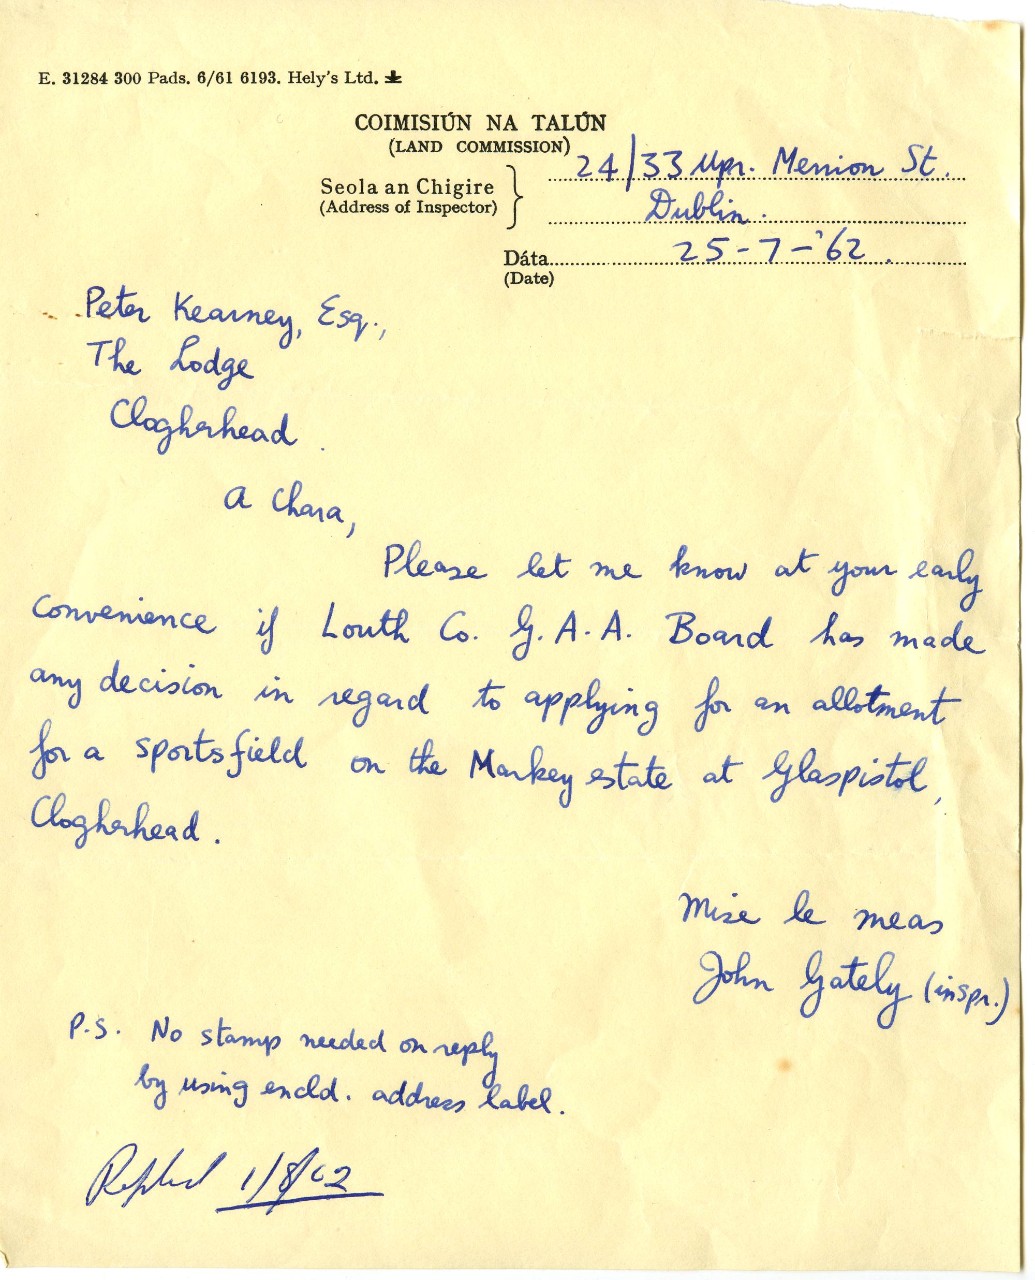 E. 31284 300 Pads. 6/61 6193. Hely's Ltd.
COIMISIÚN NA TALÚN
(LAND COMMISSION)
Seola an Chigire
(Address of Inspector)
24/33 Upr. Merrion St.
Dublin.
Dáta 25-7-'62.
(Date)
Peter Kearney, Esq.,
The Lodge
Clogherhead.
A Chara,
Please let me know at your early
convenience if Louth Co. G.A.A. Board has made
any decision in regard to applying for an allotment
for a sportsfield on the Markey estate at Glaspistol,
Clogherhead.
Mise le meas
John Gately (inspr.)
P.S. No stamp needed on reply
by using encld. address label.
Replied 1/8/62